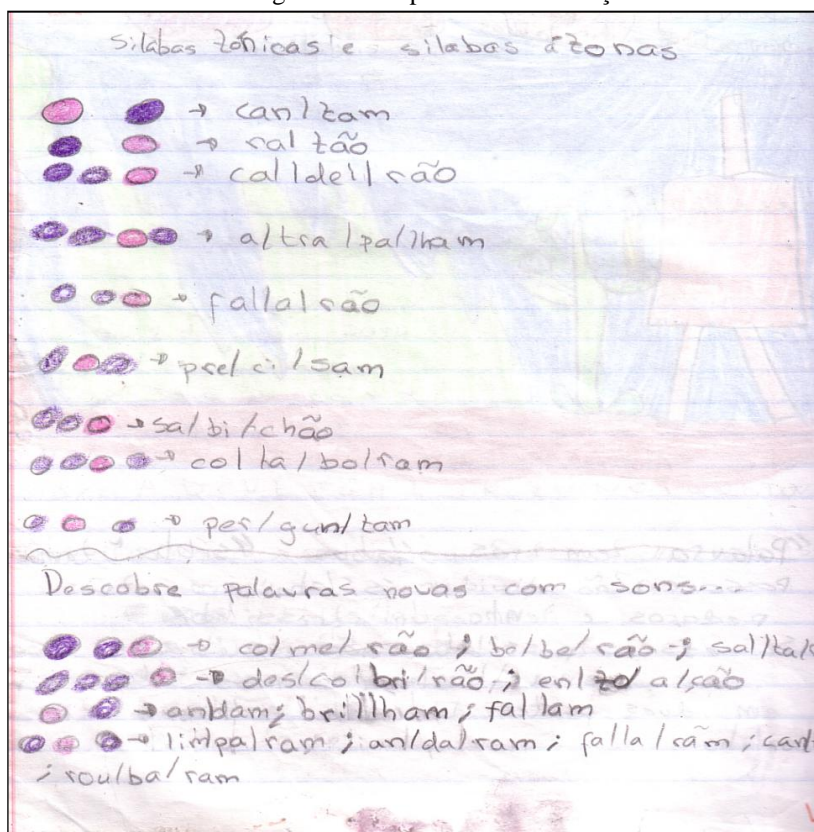 Silabas tónicas e silabas átonas
→ can/tam
→ ra/tão
→ cal/dei/rão
→ a/tra/pa/lham
→ fa/la/rão
→ pre/ci/sam
→ sa/bi/chão
→ co/la/bo/ram
→ per/gun/tam
Descobre palavras novas com sons....
→ co/me/rão ; be/be/rão ; sal/ta/
→ des/co/bri/rão ; en/ a/ção
→ an/dam ; bri/lham ; fa/lam
→ lim/pa/ram ; an/da/ram ; fa/la/ram ; cant
; rou/ba/ram